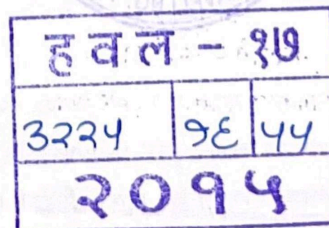 हवल - १७
३२२५ १६ ५५
२०१५